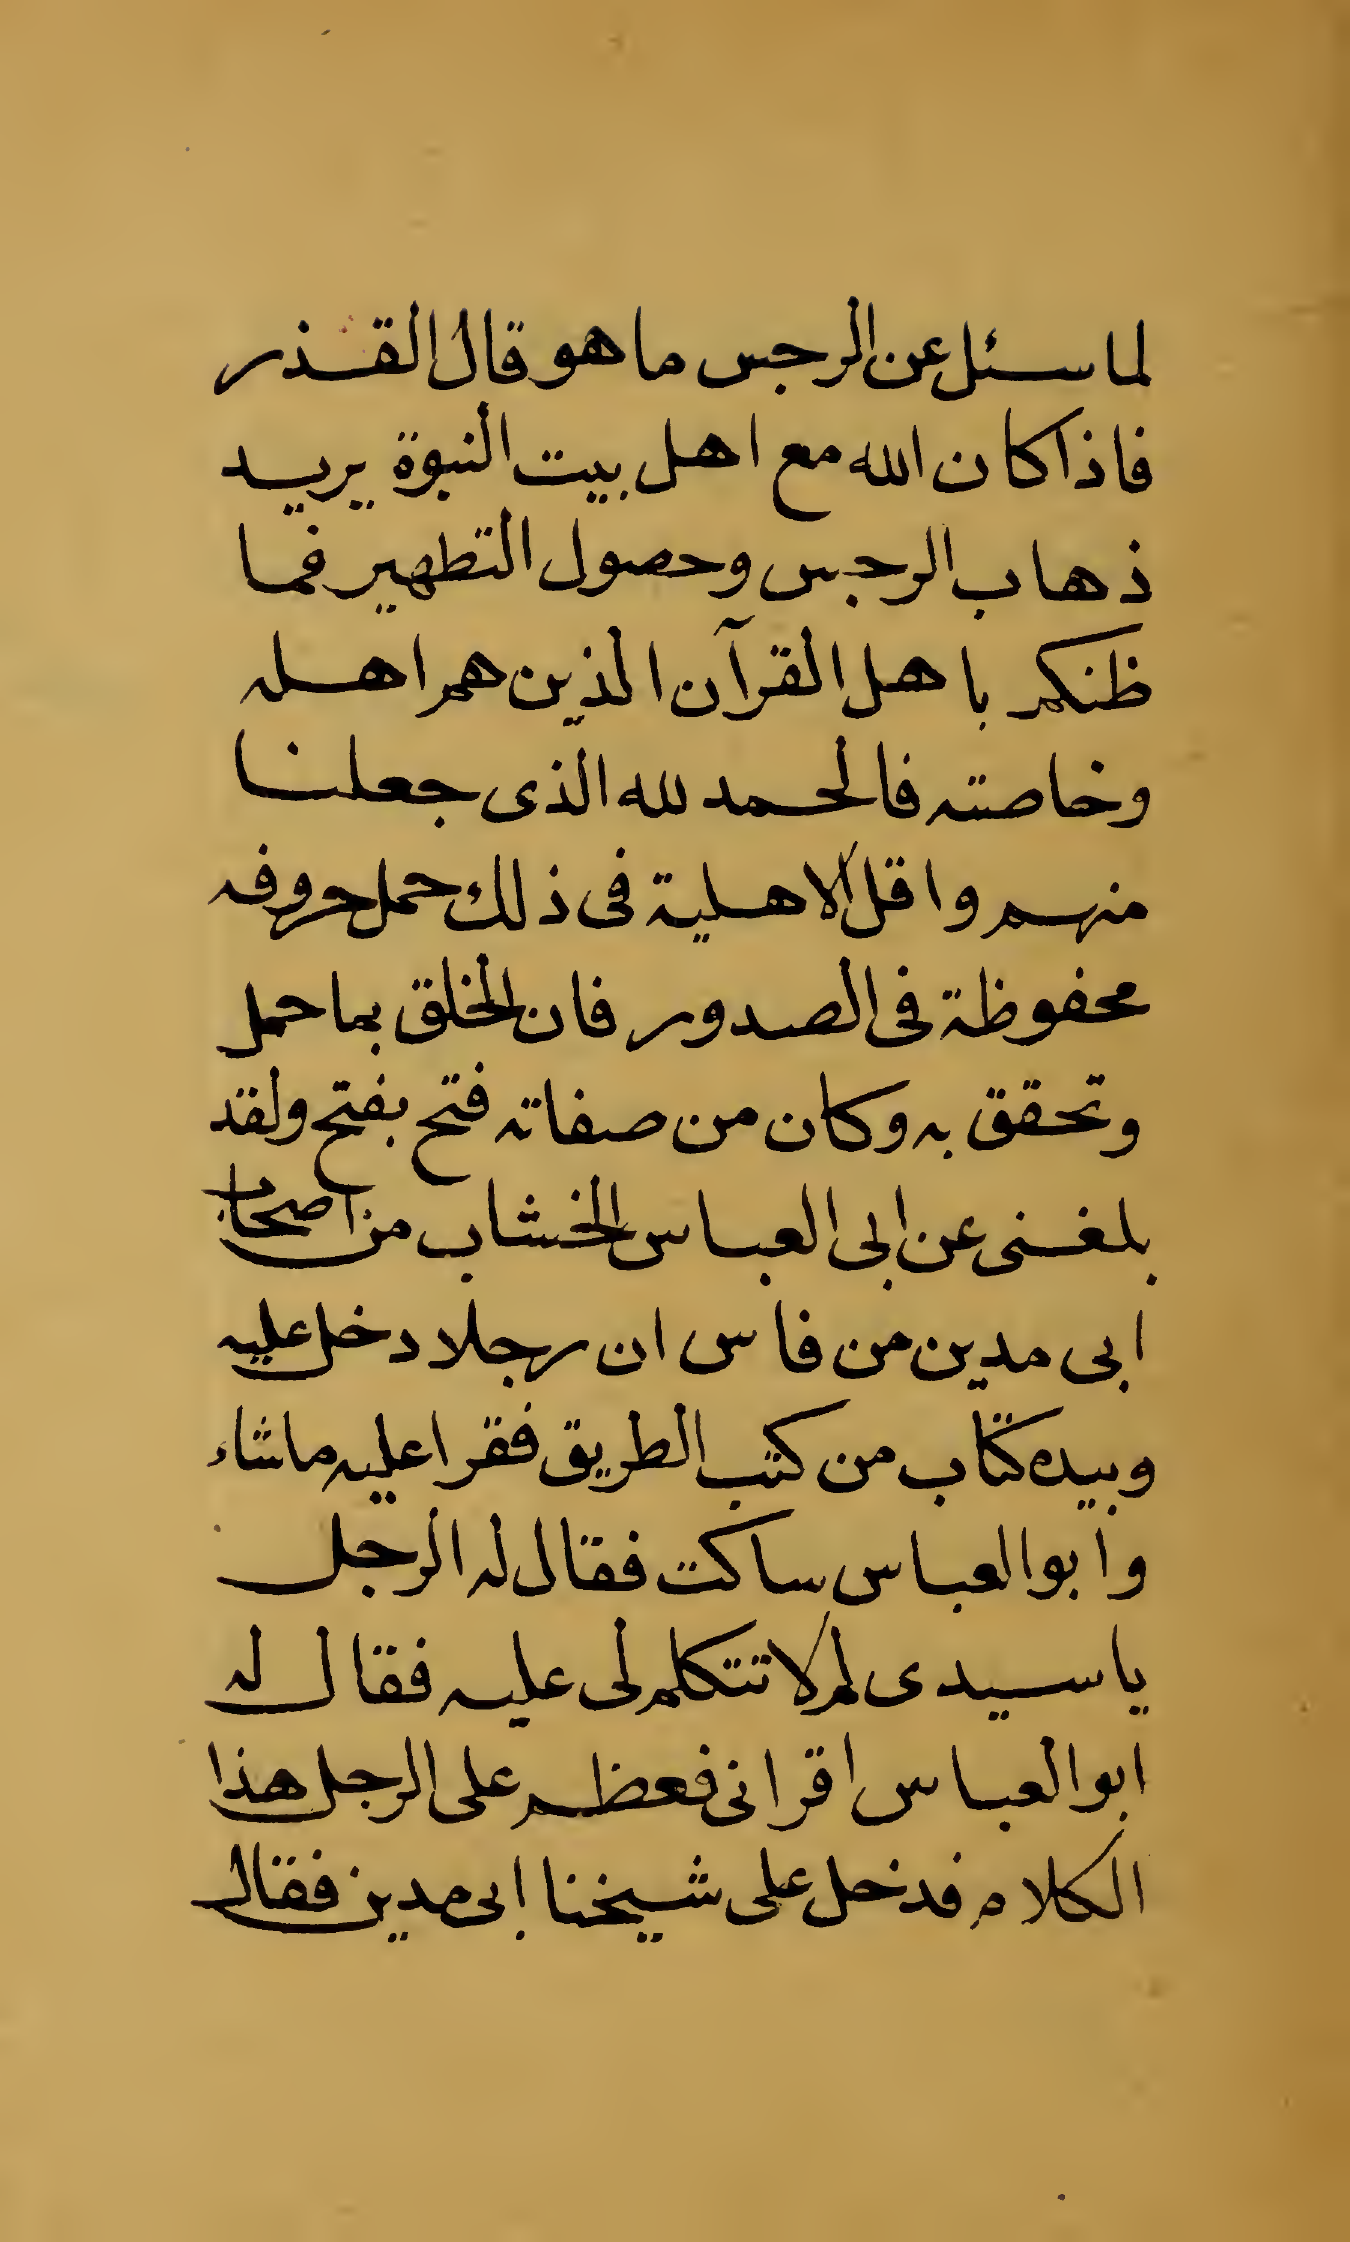 لما سئل عن الرجس ما هو قال القذر
فاذا كان الله مع اهل بيت النبوة يريد
ذهاب الرجس وحصول التطهير فما
ظنكم باهل القرآن الذين هم اهله
وخاصته فالحمد لله الذى جعلنا
منهم واقل الاهلية فى ذلك حمل حروفه
محفوظة فى الصدور فان الخلق بما حمل
وتحقق به وكان من صفاته فتح بفتح ولقد
بلغنى عن ابى العباس الخشاب من اصحاب
ابى مدين من فاس ان رجلا دخل عليه
وبيده كتاب من كتب الطريق فقرا عليه ماشاء
وابو العباس ساكت فقال له الرجل
يا سيدى لم لا تتكلم لى عليه فقال له
ابو العباس اقرانى فعظم على الرجل هذا
الكلام فدخل على شيخنا ابى مدين فقال